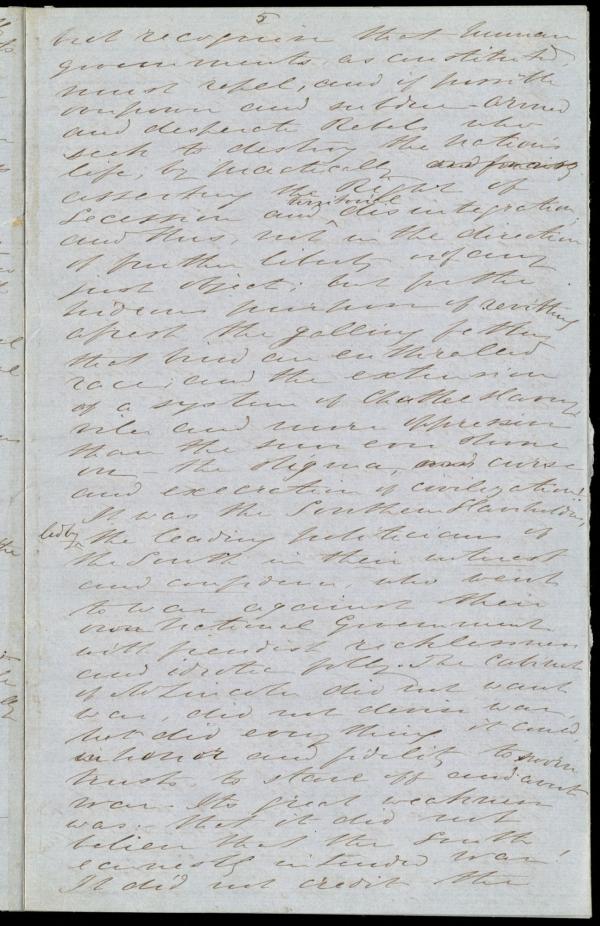 5
but recognise that human
governments, as constituted,
must repel, and if possible
overpower and subdue armed
and desperate Rebels who
seek to destroy the nation's
life, by practically
asserting the Right of
Secession and territorial disintegration,
and thus, not in the direction
of further liberty or any
just object; but for the
hideous purpose of rivitting
afresh the galling fetters
that bind an enthralled
race; and the extension
of a system of Chattel Slavery
viler and more oppressive
than the sun ever shone
on - the stigma, curse
and execration of civilization!
It was the Southern Slaveholders,
led by the leading politicians of
the South in their interest
and confidence, who went
to war against their
own National Government
with fiendish recklessness
and idiotic folly. The Cabinet
of A. Lincoln did not want
war, did not devise war,
but did everything it could
in honor and fidelity to sworn
trusts to stave off and avert
war. Its great weakness
was that it did not
believe that the South
earnestly intended war!
It did not credit the